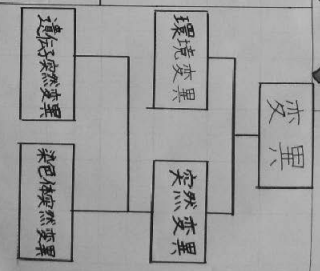 変異
環境変異
突然変異
遺伝子突然変異
染色体突然変異